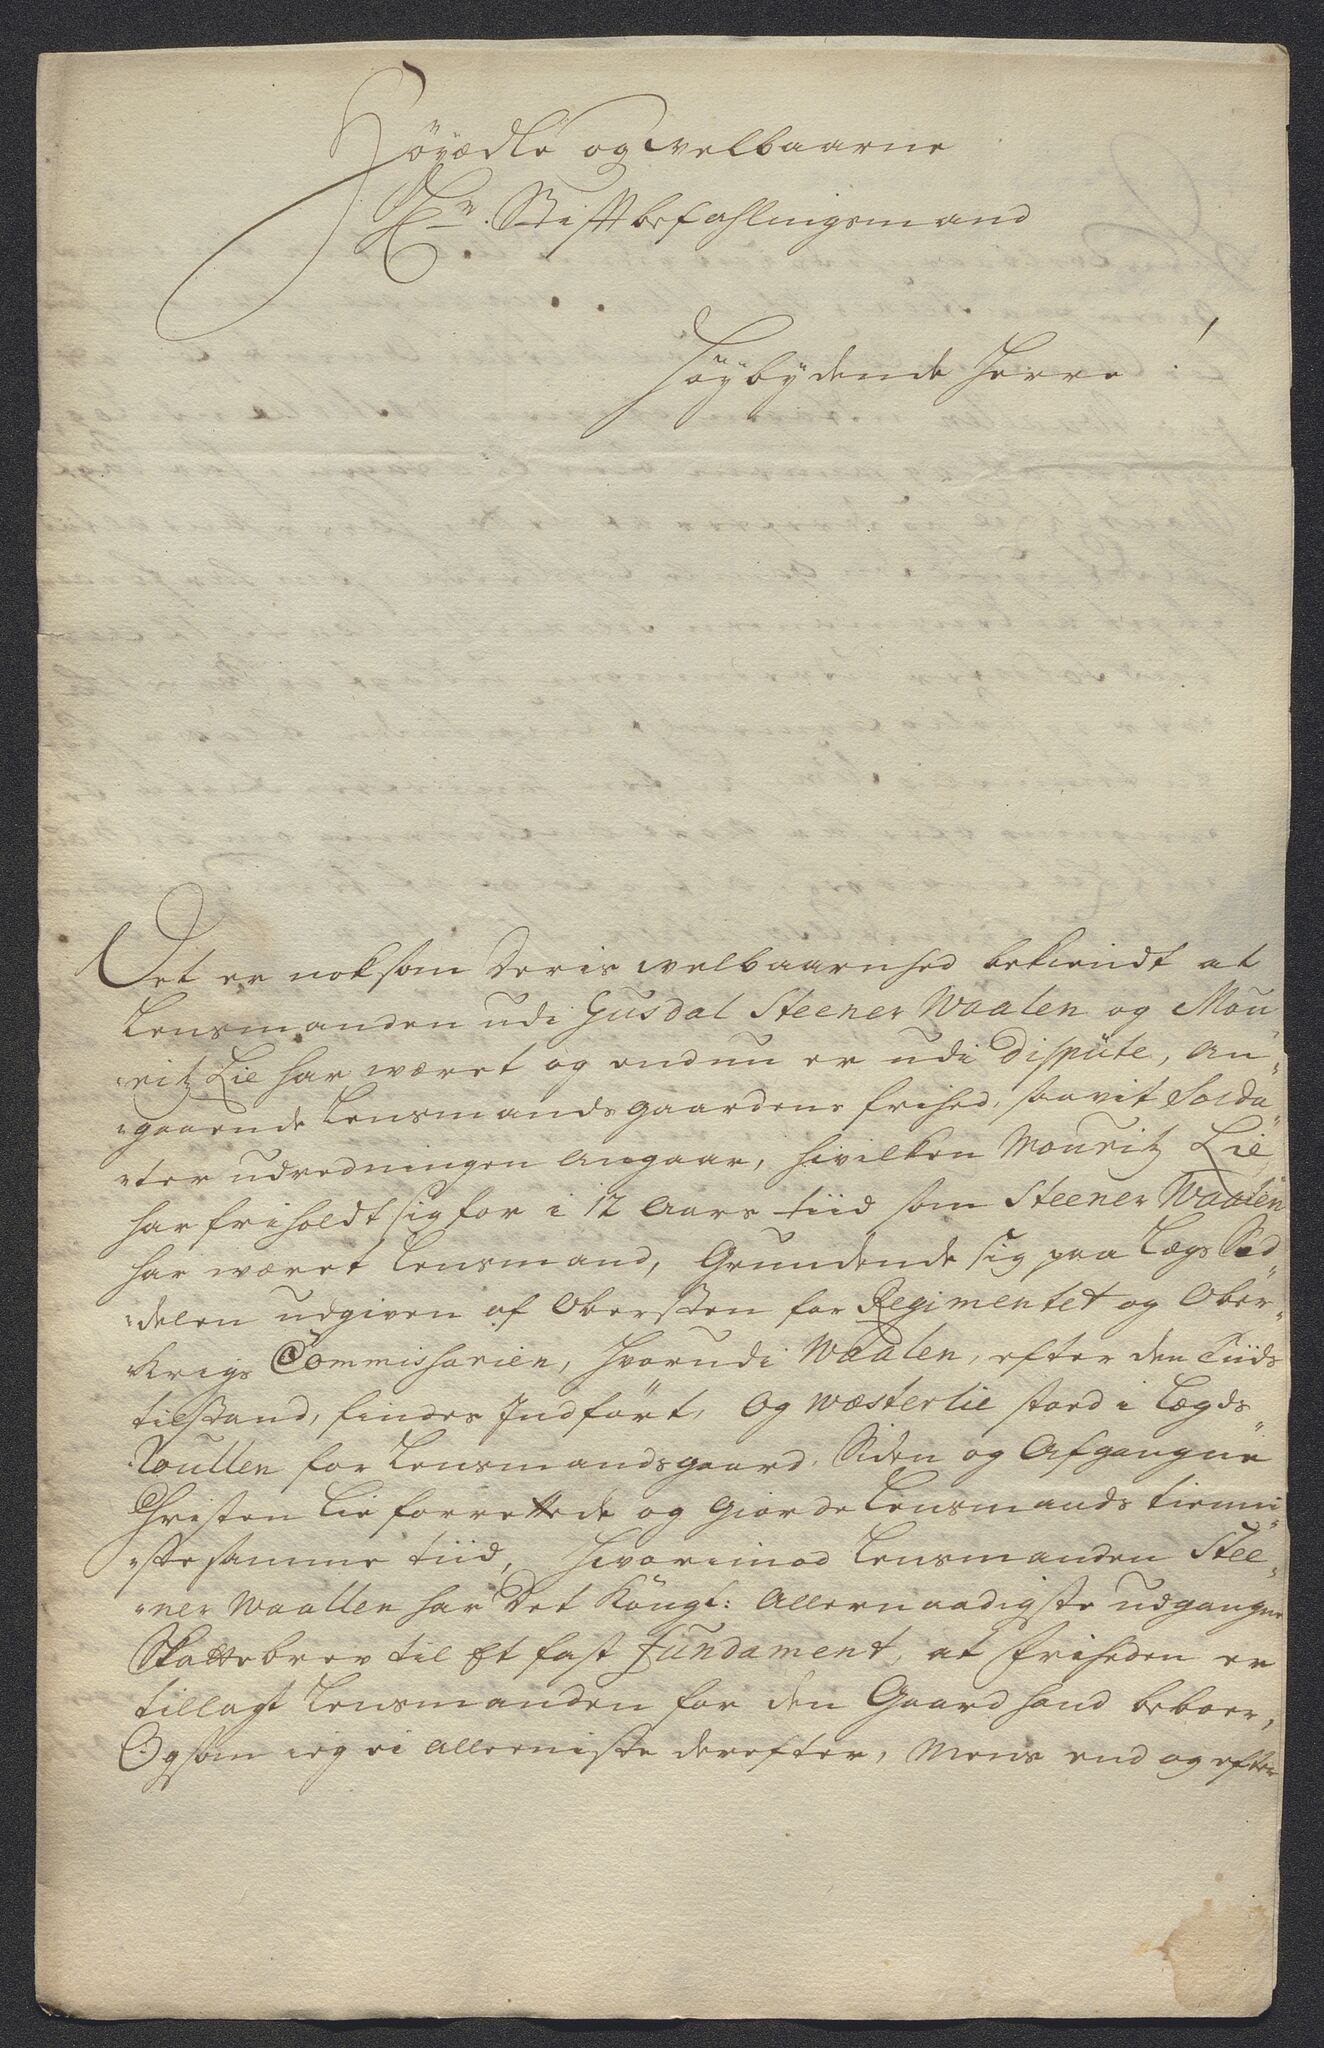 Høyædle og Welbaarne
Hr. Stiftbefahlingsmand
Høybÿdende Herre!
Det er noksom Deris Welbaarnhed bekiendt at
Lensmanden udi Gusdal Steener Waalen og Mou-
ritz Lie har wæret og endnu er udi Dispüte, an-
gaaende Lensmandsgaardens frihed, saavit Solda-
ter udredningen angaar, hvilken Mouritz Lie
har friholdt sig for i 12 Aars tiid som Steener Waalen
har wæret Lensmand, Grundende sig paa Lægs Sed-
delen udgiven af Obersten for Regimentet og Ober-
Krigs Commissarien, hvorudi Waalen, efter den Tiids
tilstand, findes Indført, Og Wæsterlie stoed i Lægds
Roullen for Lensmandsgaard, Siden og Afgangne
Christen Lie forrettede og Giorde Lensmands tienni-
ste samme tiid, Hvorimod Lensmanden Stee-
ner Waallen har Det Köngl: Allernaadigste udgangne
Skattebrev til Et fast Fundament, at friheden er
tillagt Lensmanden for den Gaard hand beboer,
Og som ieg ei alleeniste derefter, Mens end og efter